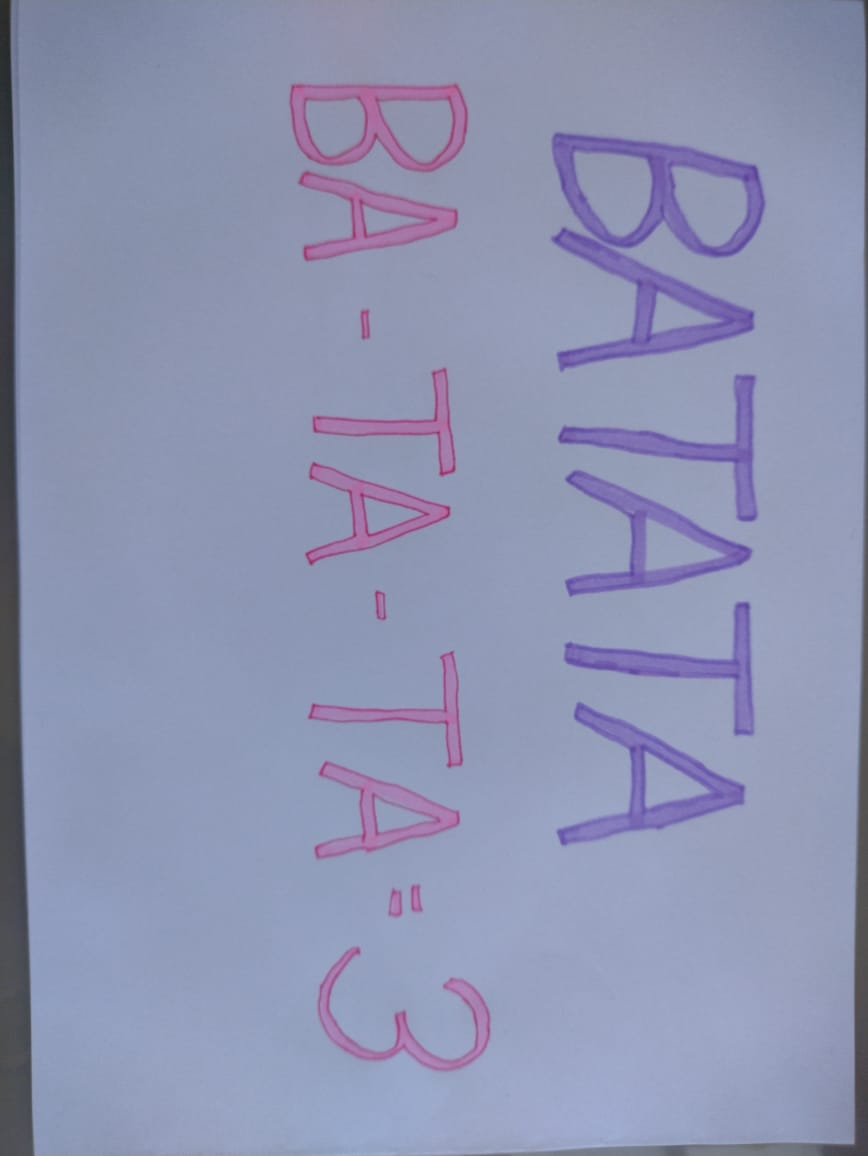 BATATA
BA-TA-TA=3